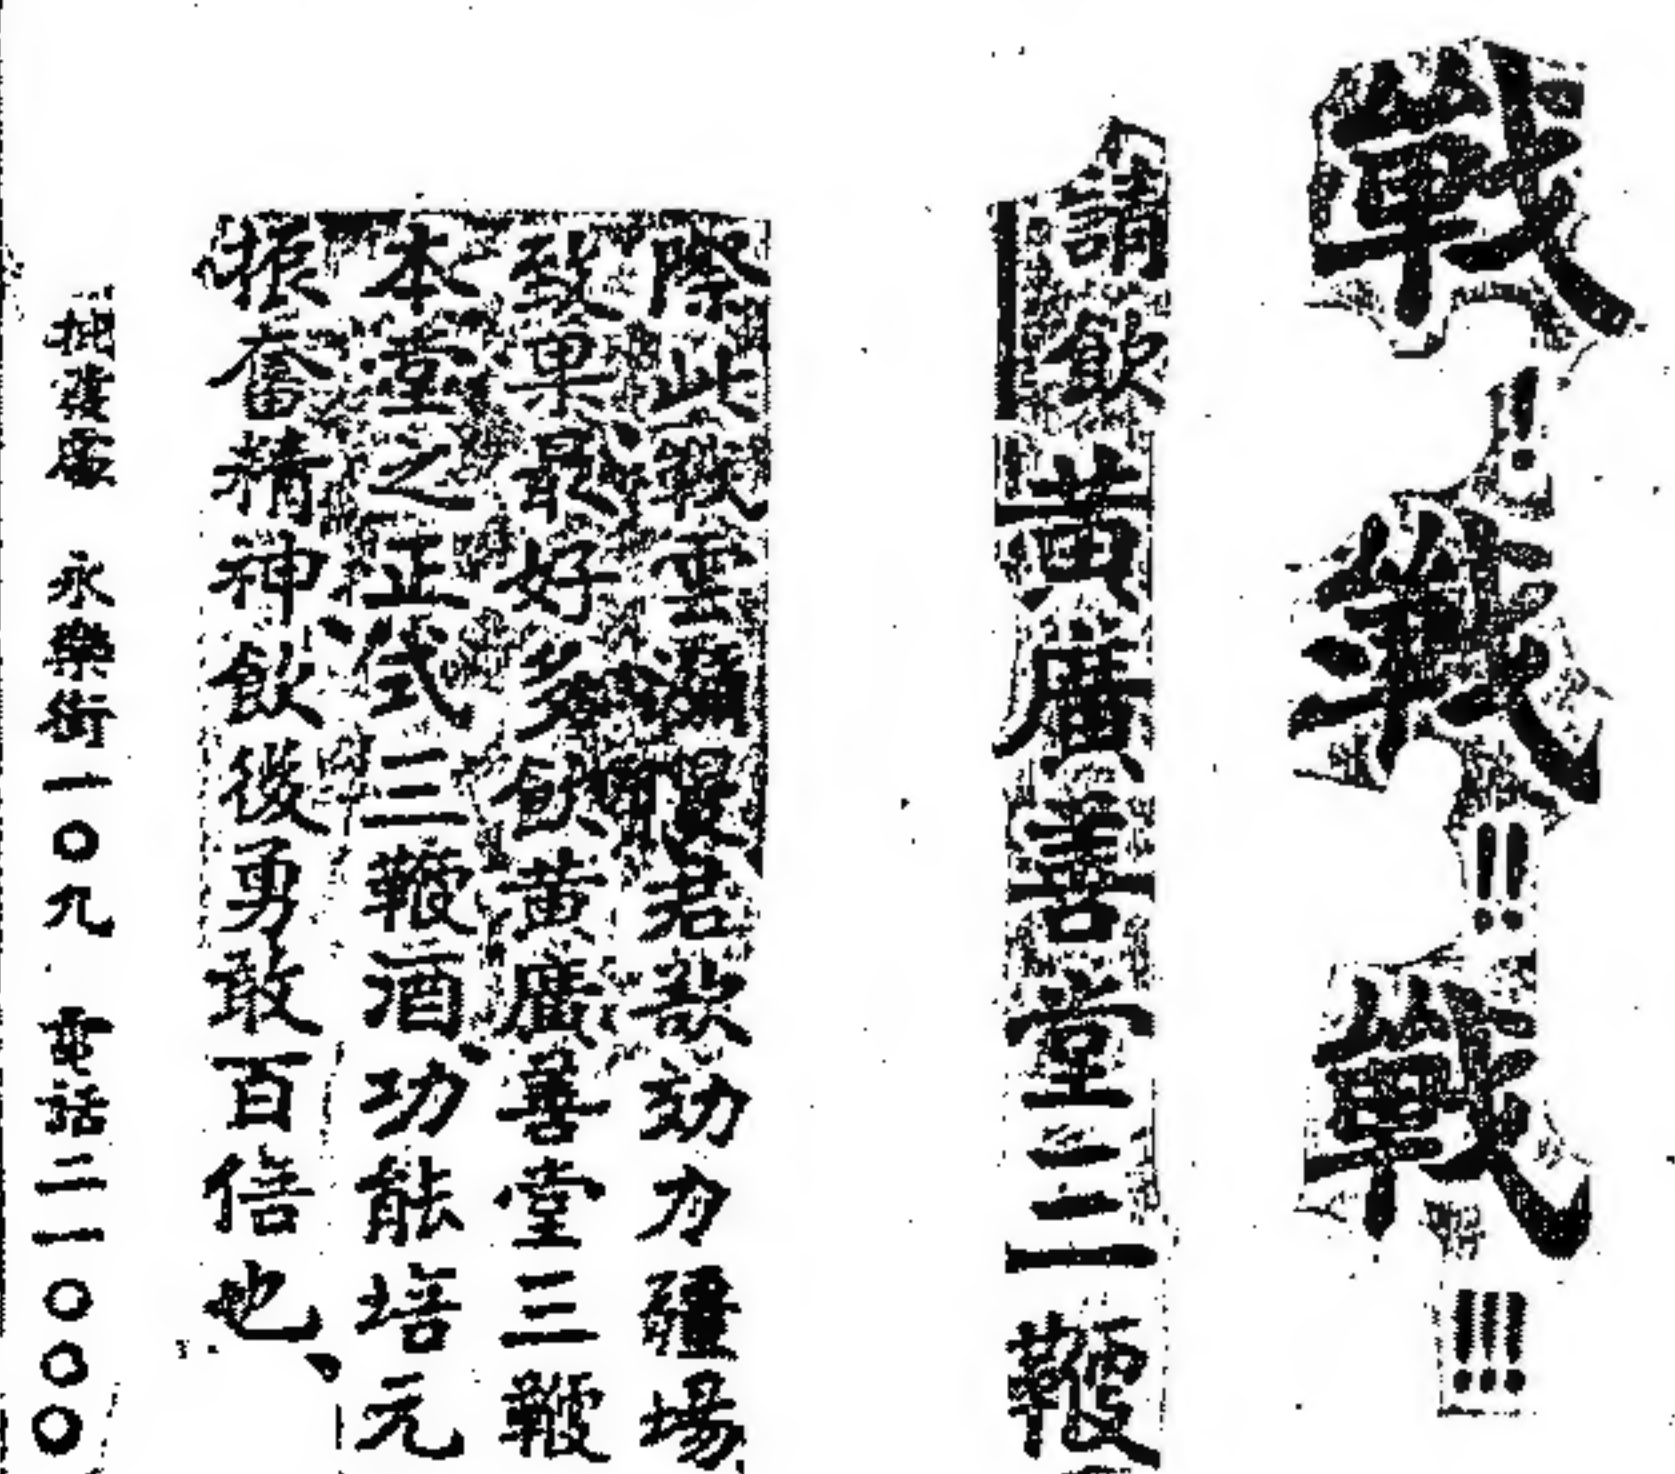 戰！戰！！戰！！！
請飲黃廣善堂三鞭
際此戰雲瀰漫君欲効力疆場
致果最好多飲黃廣善堂三鞭
本堂之正式三鞭酒、功能培元
振奮精神、飲後勇敢百倍也、
批發處 永樂街一〇九 電話二一〇〇〇